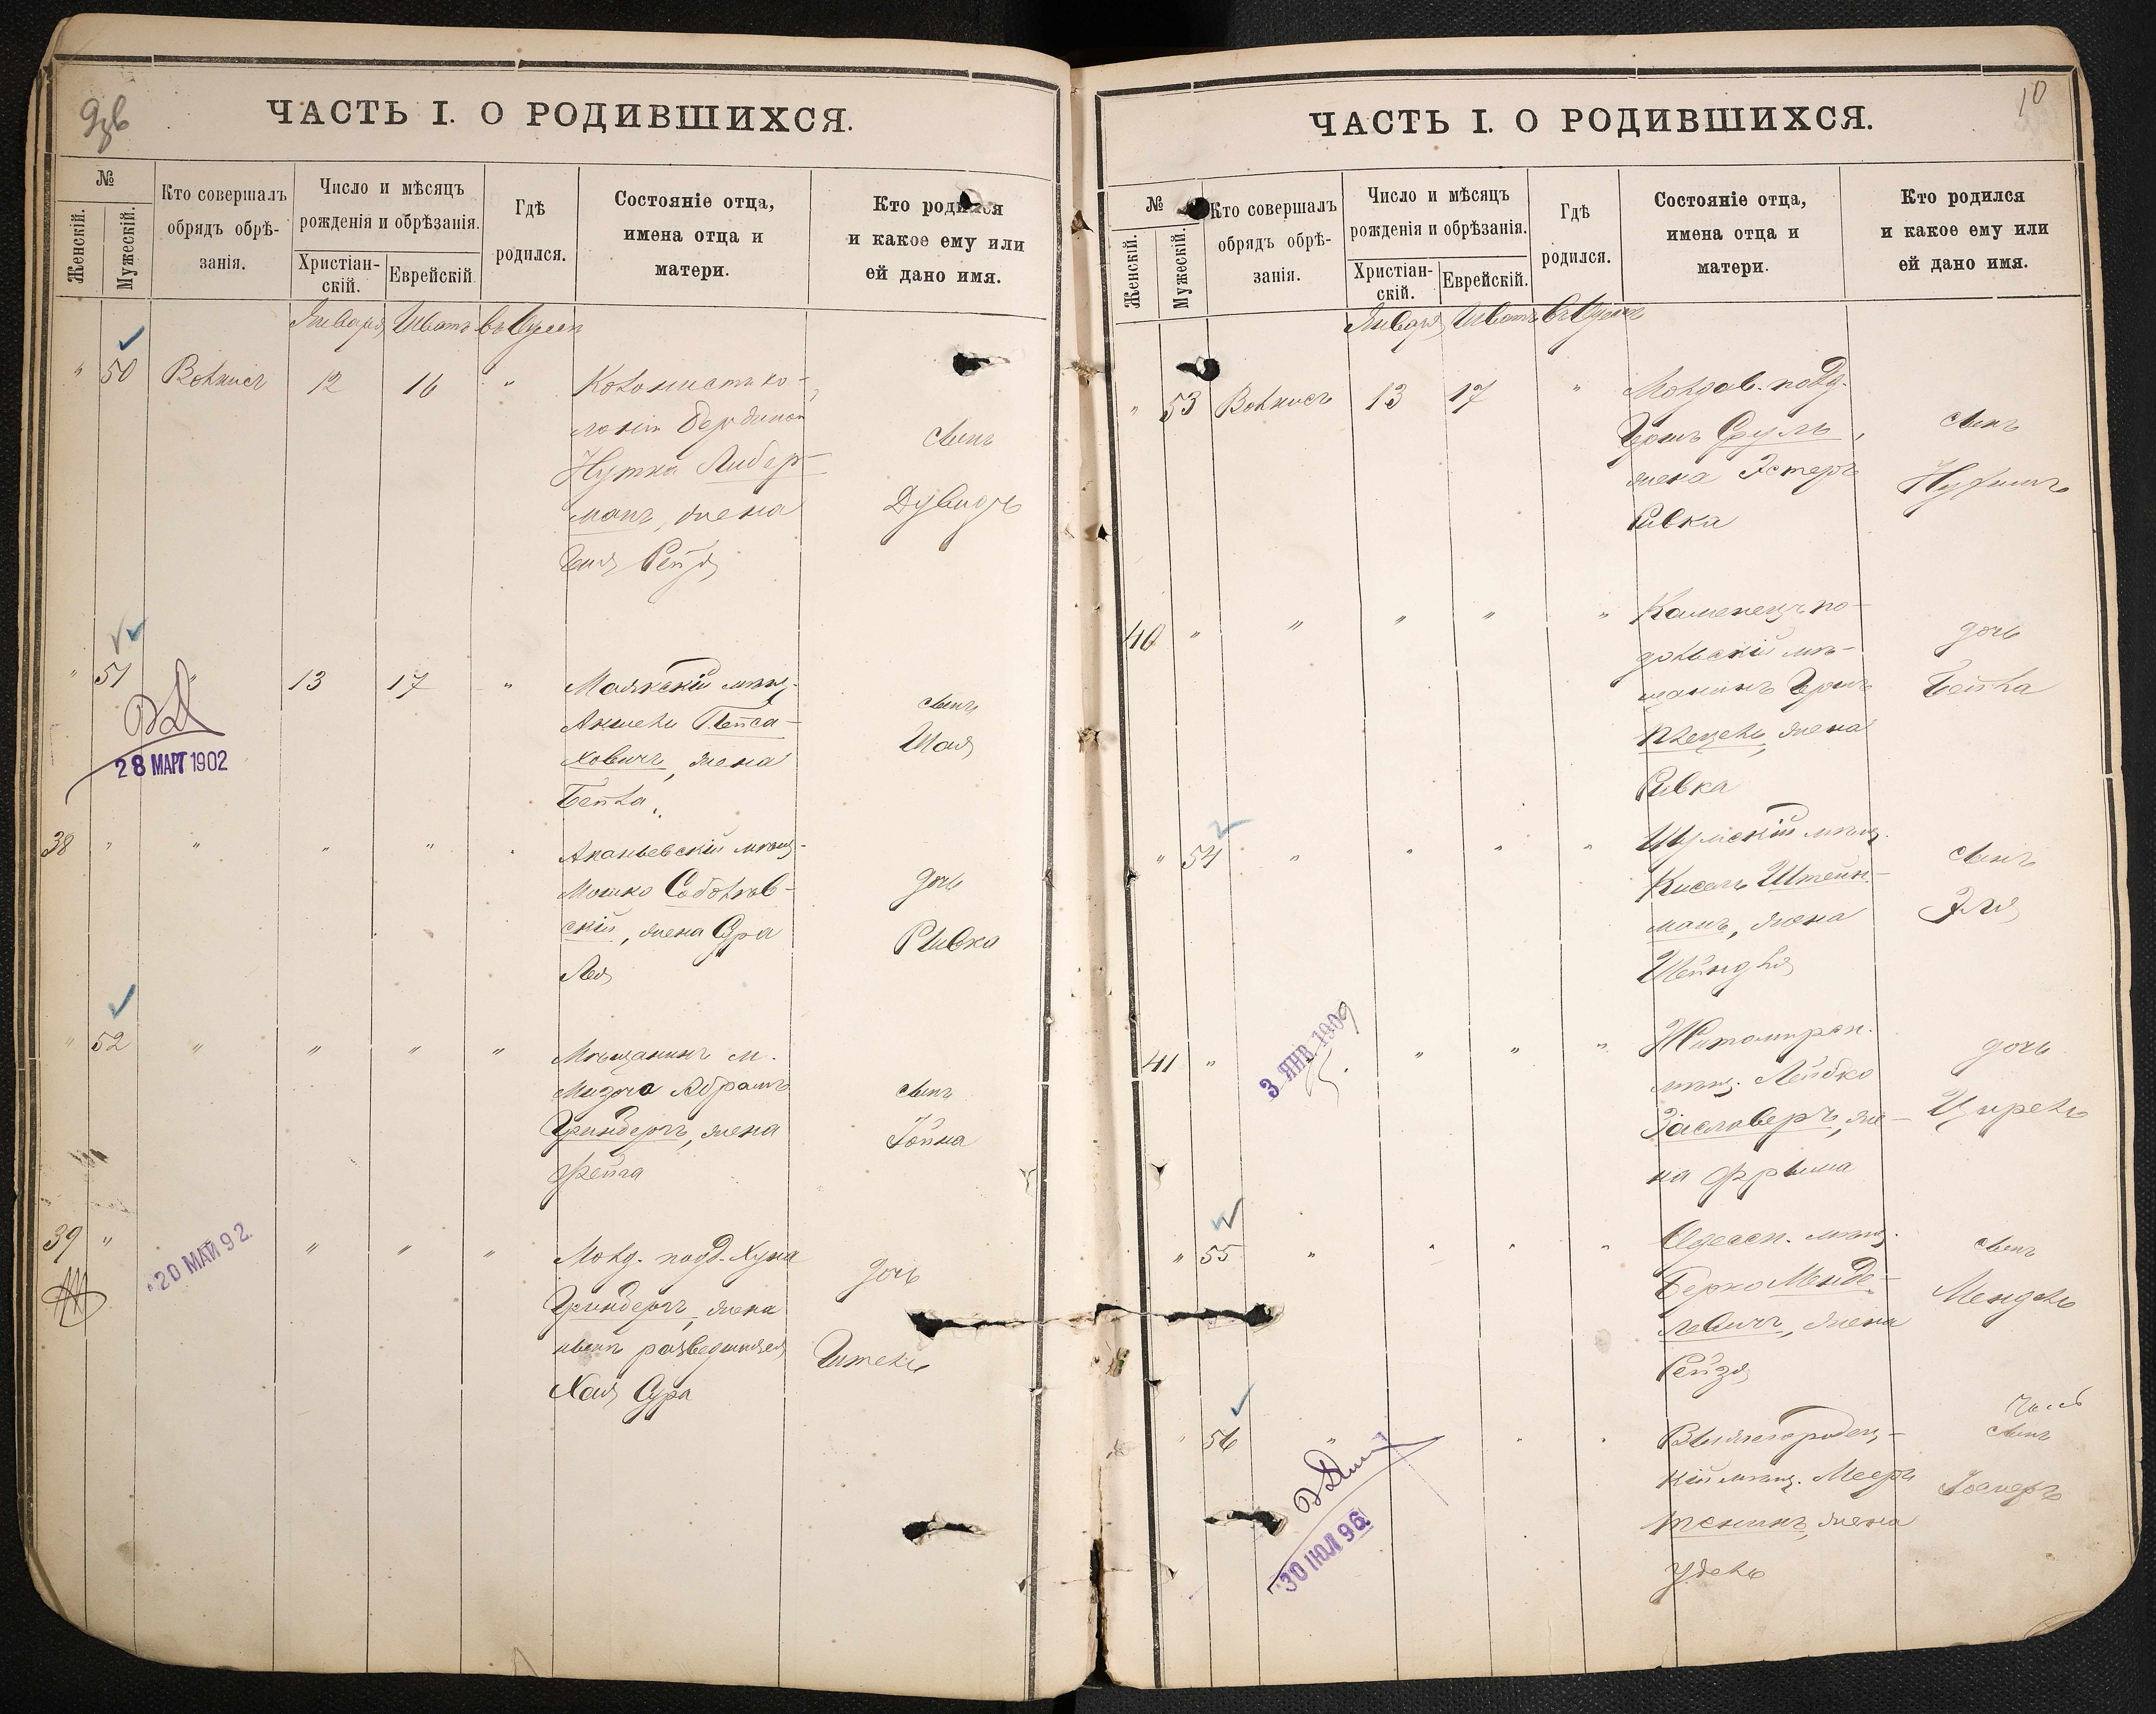 ЧАСТЬ I. О РОДИВШИХСЯ.
№
Женскій.
Мужескій.
Кто совершалъ
обрядъ обрѣ-
занія.
Число и мѣсяцъ
рожденія и обрѣзанія.
Христіан-
скій.
Еврейскій
Гдѣ
родился.
Состояніе отца,
имена отца и
матери.
Кто родился
и какое ему или
ей дано имя.
Января Шватъ въ Одессѣ
" 50 Вольнисъ 12 16 "
Колонистъ ко-
лоніи
Нутка Либер-
манъ, жена
Рейзя
сынъ
Дувидъ
" 51 " 13 17 "
Маякскій мѣщ.
Аншель Пейса-
ховичъ, жена
Бейла
сынъ
Шая
28 МАРТ 1902
38 " " " " "
Ананьевскій мѣщ-
Мошко Соболев-
скій, жена Сура
Лея
дочь
Ривка
" 52 " " " "
Мѣщанинъ м.
Мизоча Абрамъ
Гринбергъ, жена
Фейга
сынъ
Іойна
39 "
20 МАЙ 92.
" " "
Молд. подд. Хуна
Гринбергъ, жена
нынѣ разведшаяся
Хая Сура
дочь
Гитель
10
ЧАСТЬ I. О РОДИВШИХСЯ.
№
Женскій.
Мужескій.
Кто совершалъ
обрядъ обрѣ-
занія.
Число и мѣсяцъ
рожденія и обрѣзанія.
Христіан-
скій.
Еврейскій.
Гдѣ
родился.
Состояніе отца,
имена отца и
матери.
Кто родился
и какое ему или
ей дано имя.
Января Шватъ въ Одессѣ
" 53 Вольнисъ 13 17 "
Молдав. подд.
Гершъ Сруль,
жена Эстеръ
Ривка
сынъ
Нухимъ
40 " " " " "
Каменецъ по-
дольскій мѣ-
щанинъ Гершъ
жена
Ривка
дочь
Бейла
" 54 " " " "
Шумскій мѣщ.
Кисель Штейн-
манъ, жена
Шейндля
сынъ
Эля
41 "
3 ЯНВ 1909
" " "
Житомирск.
мѣщ. Лейбко
Заславеръ, же-
на Фрыма
дочь
Цирель
" 55 " " " "
Одесск. мѣщ.
Берко Менде-
левичъ, жена
Рейзя
сынъ
Мендель
" 56 " " "
30 ІЮЛ 96
Вышегородец-
кій мѣщ. Мееръ
жена
Удель
сынъ